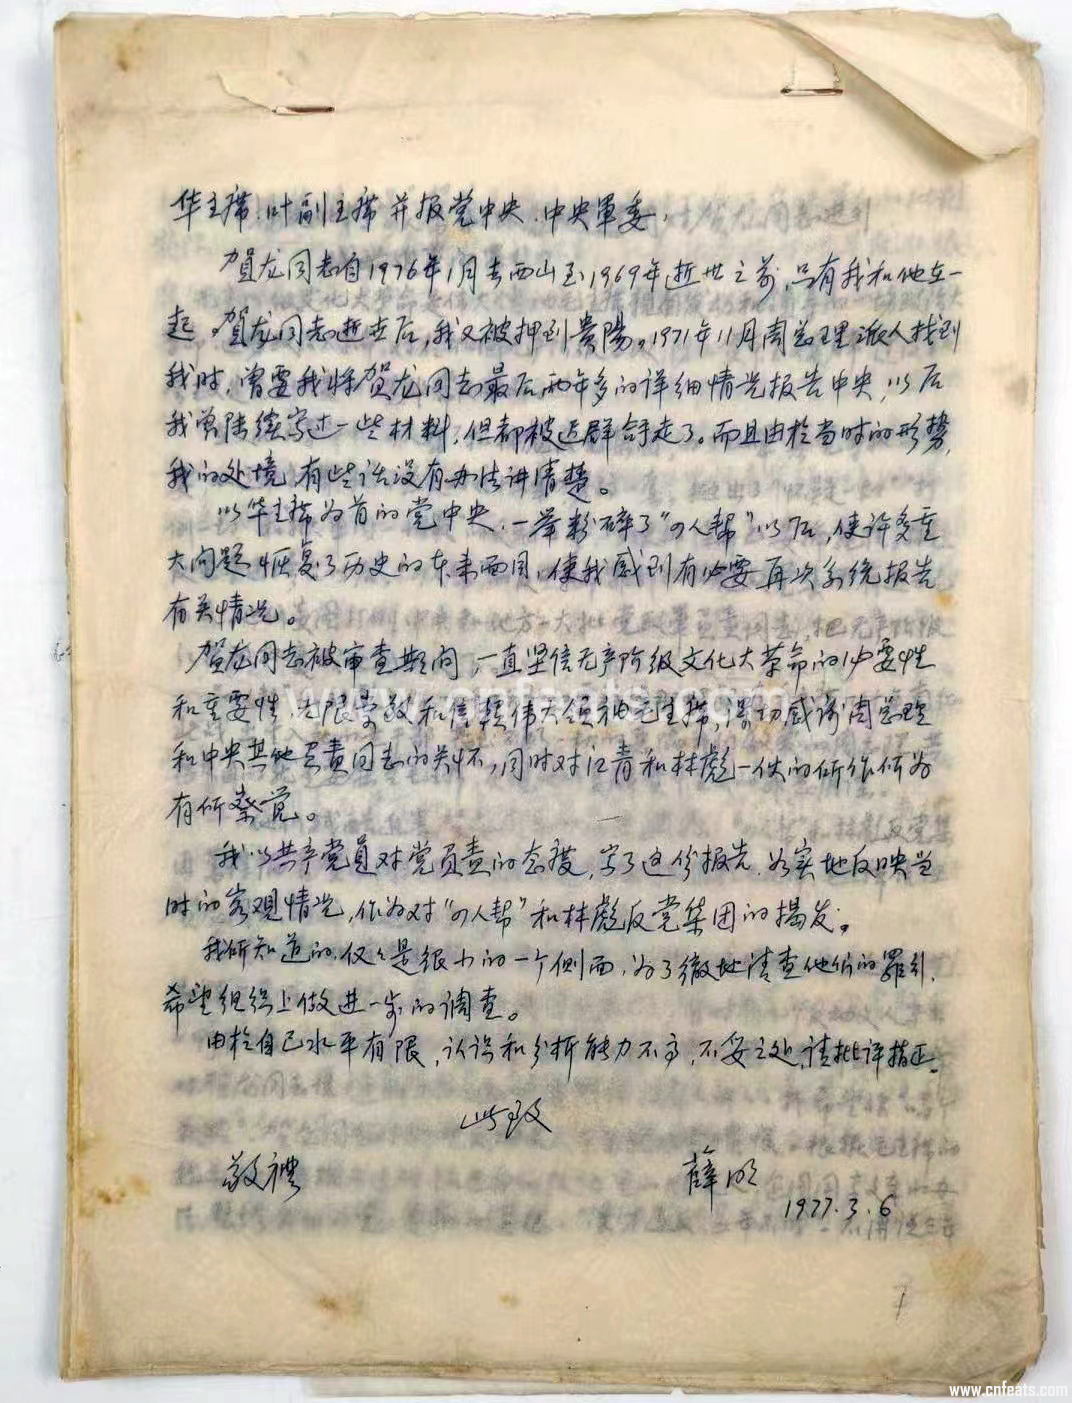 华主席、叶副主席并报党中央、中央軍委：
賀龙同志自1976年1月去西山至1969年逝世之前，只有我和他在一
起。賀龙同志逝世后，我又被押到貴陽。1971年11月周总理派人找到
我时，曾要我将賀龙同志最后两年多的详细情况报告中央，以后
我曾陆续写过一些材料，但都被迟群合手走了。而且由於当时的形势，
我的处境，有些话没有办法讲清楚。
以华主席为首的党中央，一举粉碎了“四人帮”以后，使许多重
大问题恢复了历史的本来面目，使我感到有必要再次系统报告
有关情况。
賀龙同志被审查期间，一直坚信无产阶级文化大革命的必要性
和重要性，无限崇敬和信赖伟大领袖毛主席，深切感谢周总理
和中央其他负责同志的关怀，同时对江青和林彪一伙的所作所为
有所察觉。
我以共产党员对党负责的态度，写了这份报告，如实地反映当
时的客观情况，作为对“四人帮”和林彪反党集团的揭发。
我所知道的，仅仅是很小的一个侧面，为了彻地清查他们的罪行，
希望组织上做进一步的调查。
由於自己水平有限，认识和分析能力不高，不妥之处，请批评指正。
此致
敬禮
薛明
1977.3.6
7
www.cnfeats.com
www.cnfeats.com